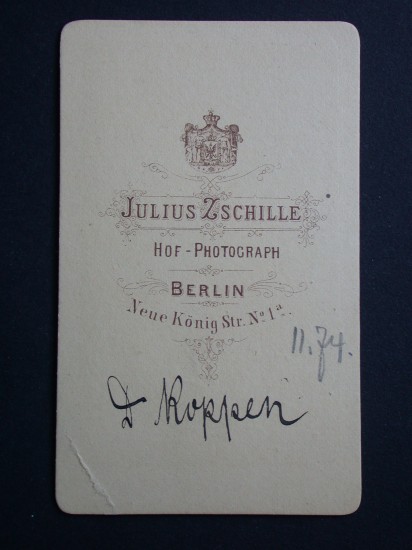 JULIUS ZSCHILLE
HOF-PHOTOGRAPH
BERLIN
Neue König Str. No 1a.
11.74.
D Koppen